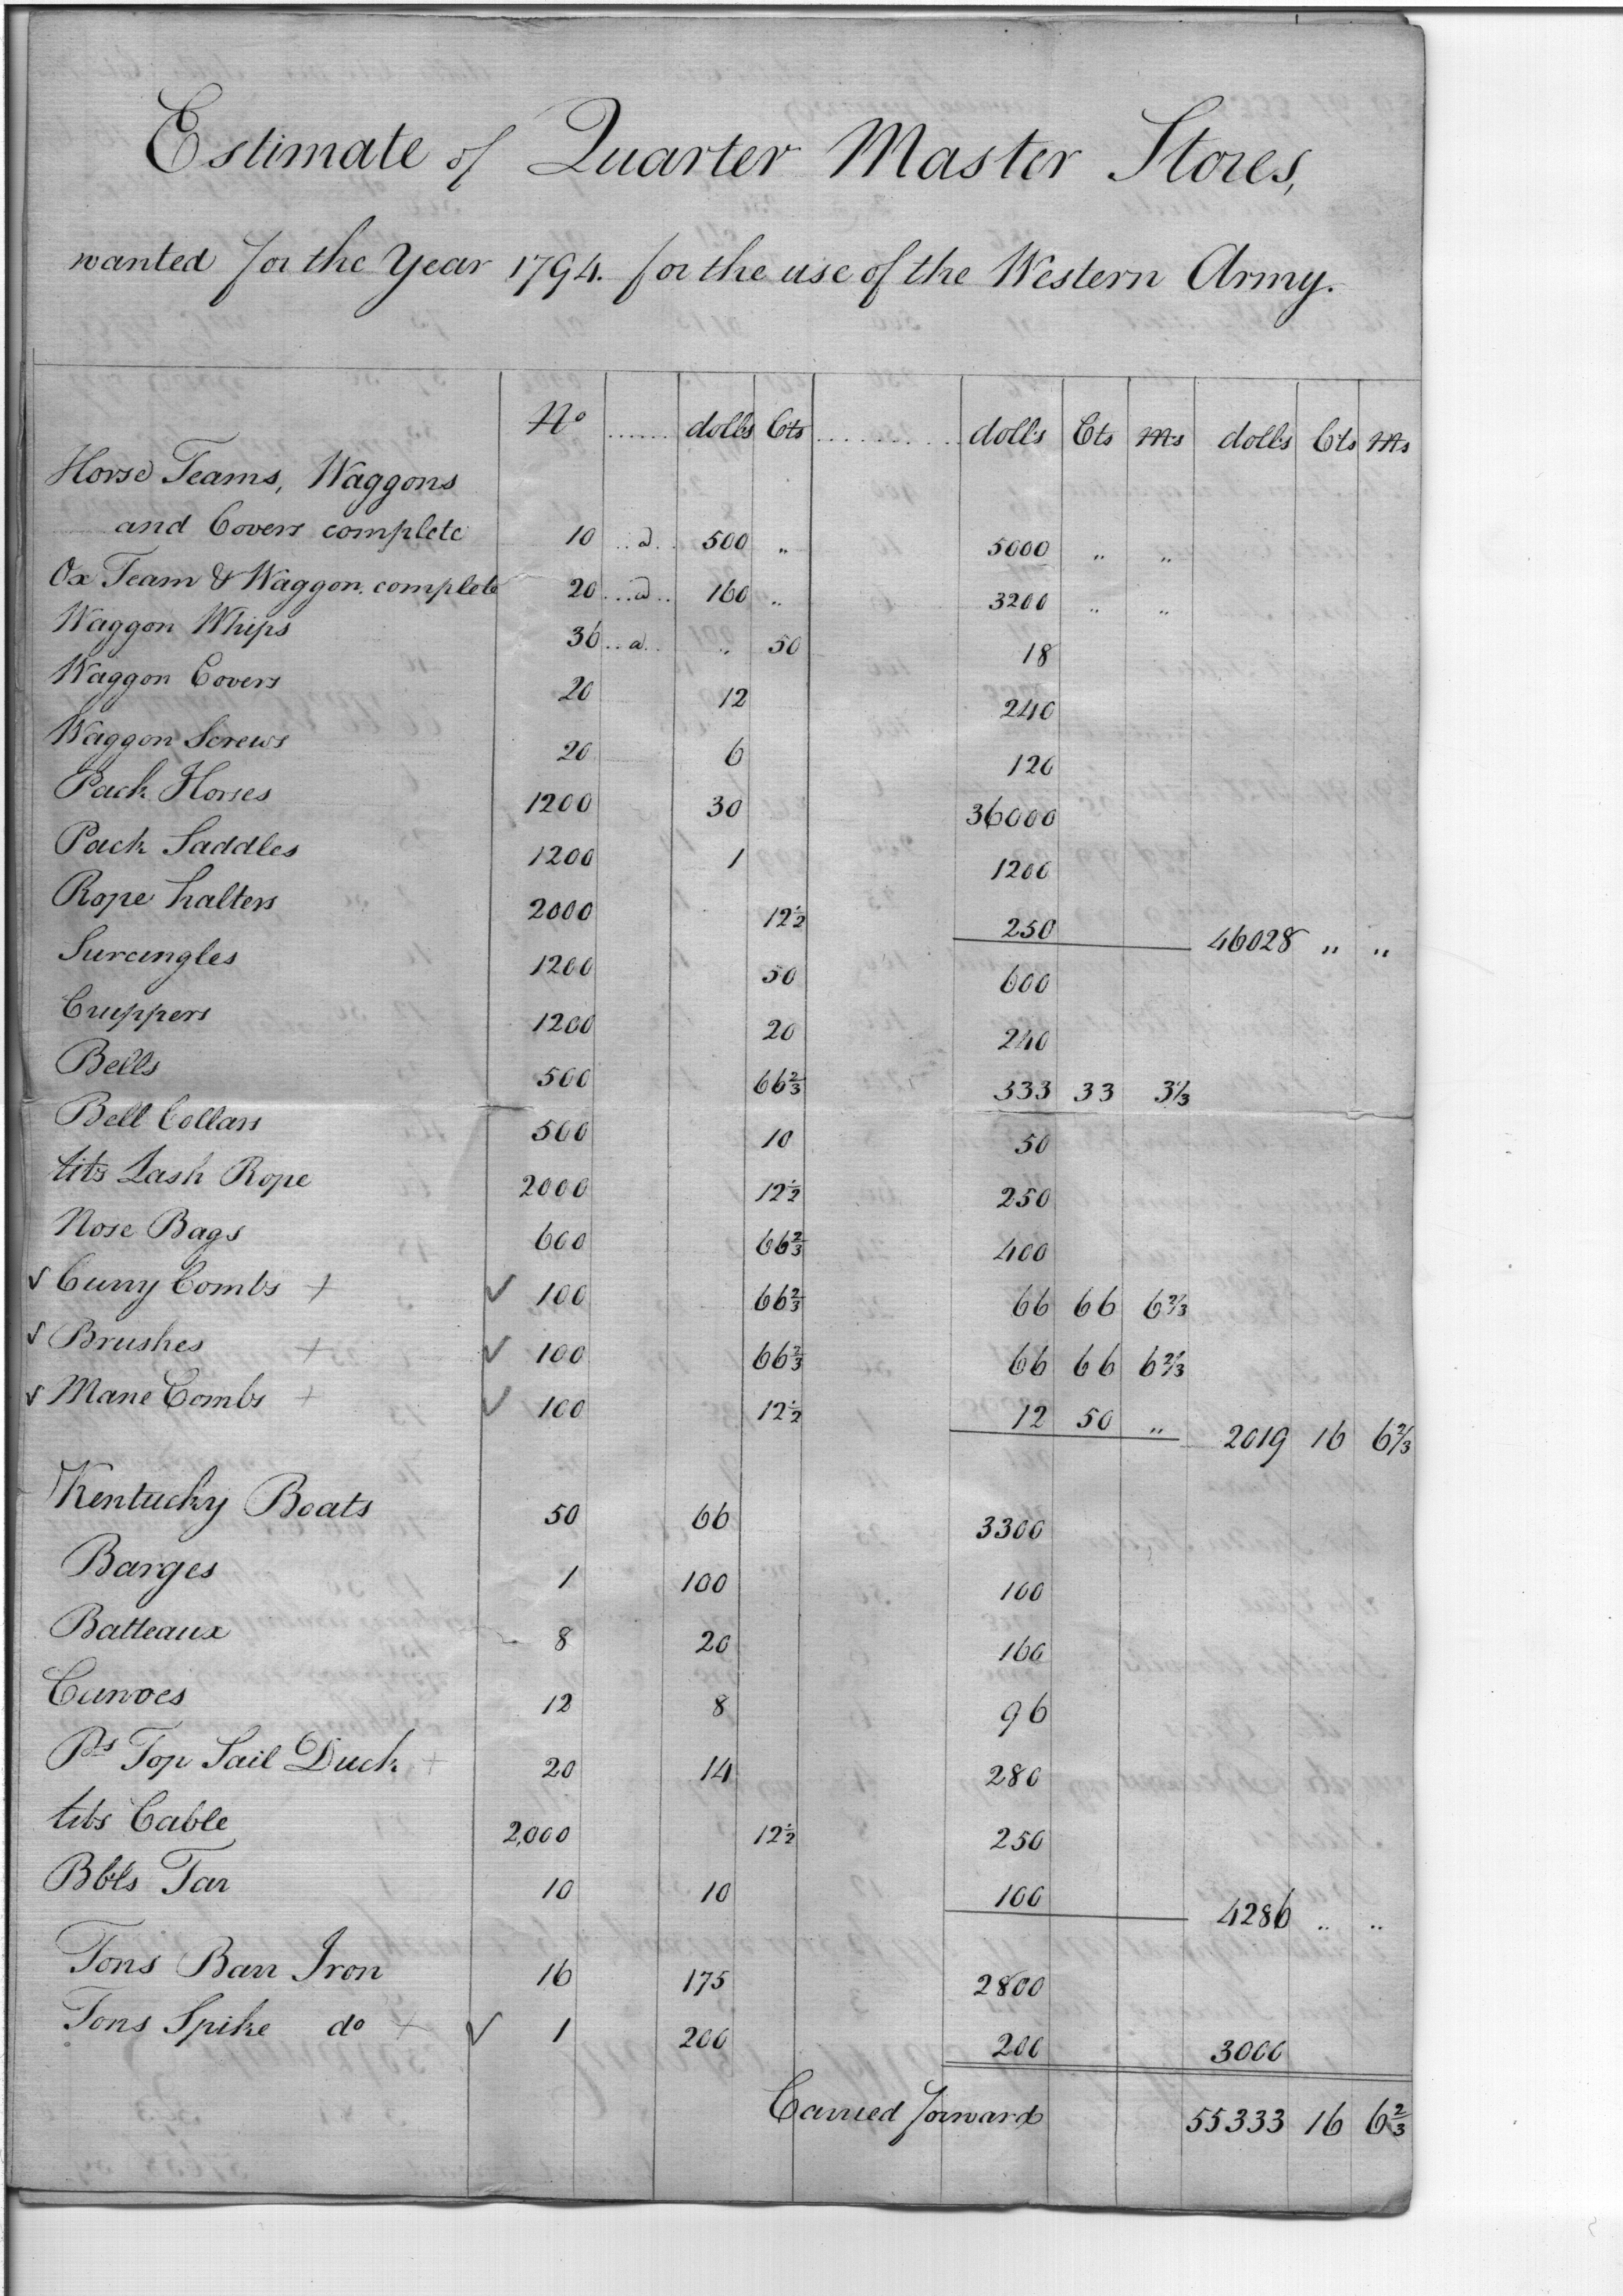 Estimate of Quarter Master Stores,
wanted for the Year 1794. for the use of the Western Army.
No ...... dolls Cts .......... dolls Cts Ms dolls Cts Ms
Horse Teams, Waggons
and Covers complete 10 ..a.. 500 " 5000 " "
Ox Team & Waggon complete 20 ...a.. 160 " 3200 " "
Waggon Whips 36 ..a.. " 50 18
Waggon Covers 20 12 240
Waggon Screws 20 6 120
Pack Horses 1200 30 36000
Pack Saddles 1200 1 1200
Rope halters 2000 12½ 250 46028 " "
Surcingles 1200 50 600
Cruppers 1200 20 240
Bells 500 66⅔ 333 33 3⅓
Bell Collars 500 10 50
lbs Lash Rope 2000 12½ 250
Nose Bags 600 66⅔ 400
✓ Curry Combs + ✓ 100 66⅔ 66 66 6⅔
✓ Brushes + ✓ 100 66⅔ 66 66 6⅔
✓ Mane Combs + ✓ 100 12½ 12 50 " 2019 16 6⅔
Kentucky Boats 50 66 3300
Barges 1 100 100
Batteaux 8 20 160
Canoes 12 8 96
Ps Top Sail Duck + 20 14 280
lbs Cable 2,000 12½ 250
Bbls Tar 10 10 100 4286 " "
Tons Barr Iron 16 175 2800
Tons Spike do + ✓ 1 200 200 3000
Carried forward 55333 16 6⅔